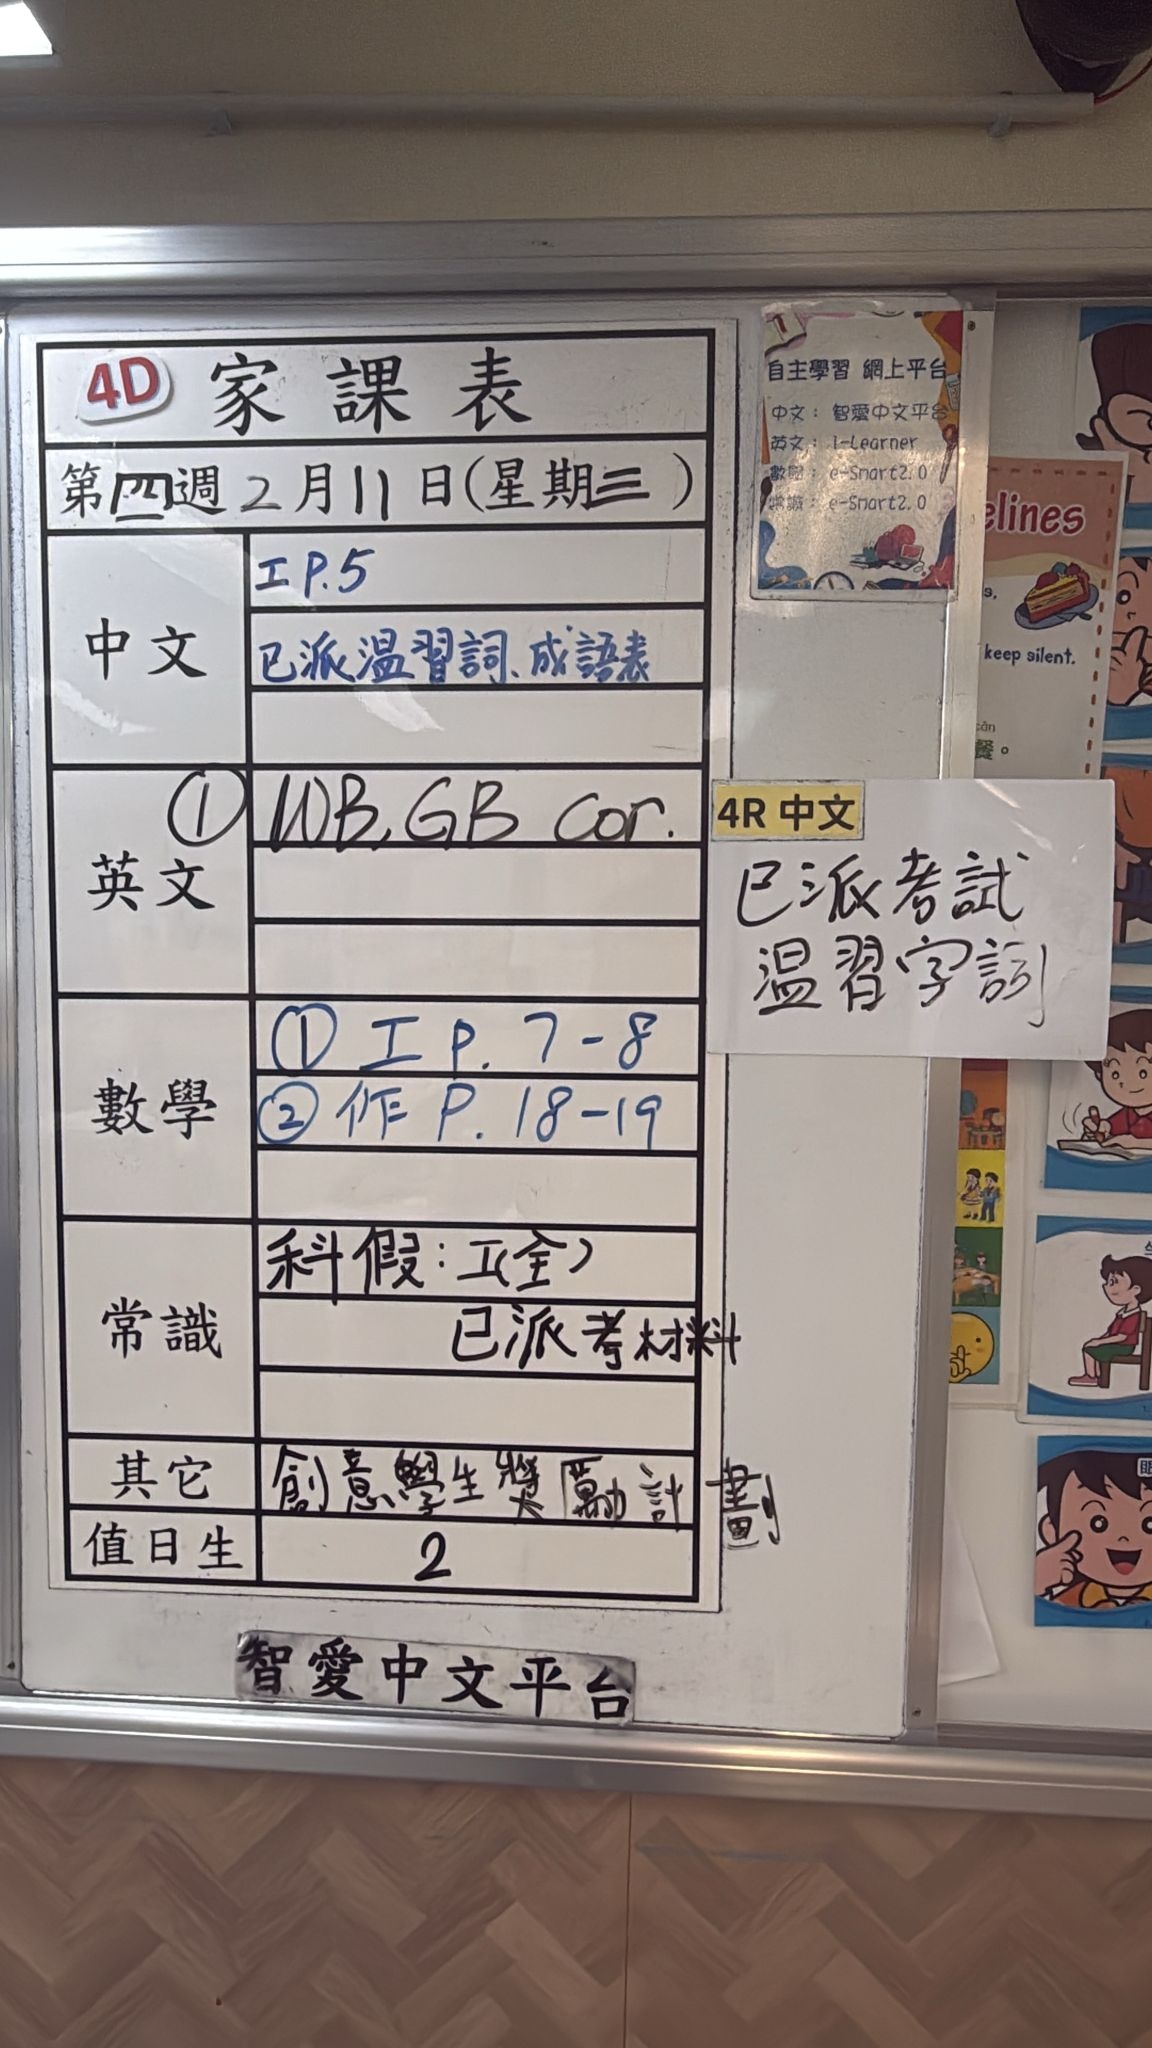 4D 家課表
第四週2月11日(星期三)
中文
工P.5
已派温習詞、成語表
英文
① WB, GB cor.
數學
① 工 P. 7-8
② 作 P. 18-19
常識
科假:工(全)
已派考材料
其它
創意學生獎勵計劃
值日生
2
智愛中文平台
4R 中文
已派考試
温習字詞
自主學習 網上平台
中文: 智愛中文平台
英文: i-Learner
數學: e-Smart2.0
常識: e-Smart2.0
elines
s,
keep silent.
cān
餐。